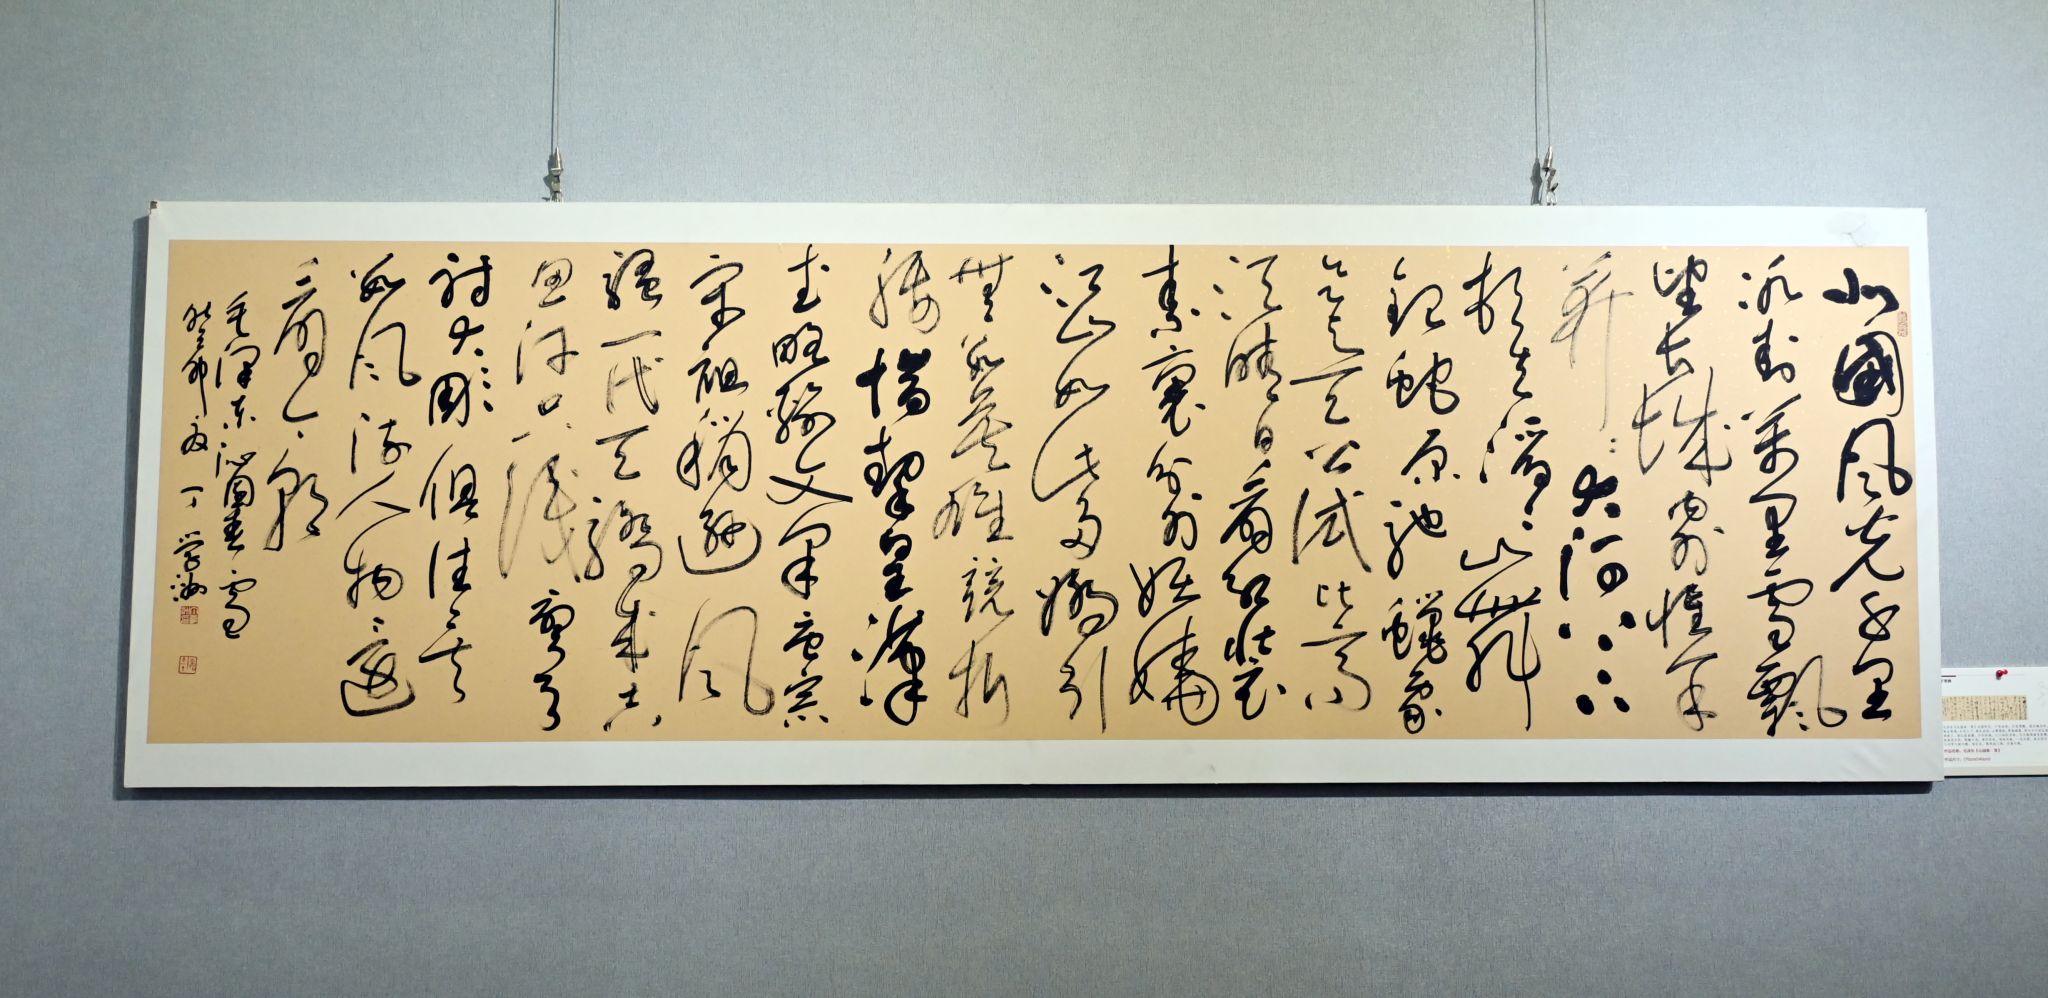 北國風光千里
冰封萬里雪飄
望长城內外惟余
莽〻大河上下
頓失滔〻山舞
銀蛇原馳蠟象
欲与天公試比高
須晴日看紅裝
素裹分外妖嬈
江山如此多嬌引
無數英雄競折
腰惜秦皇漢
武略輸文采唐宗
宋祖稍遜風
騷一代天驕成吉
思汗只識彎弓
射大雕俱往矣
數風流人物還
看今朝
毛澤東沁園春雪
癸卯夏丁學